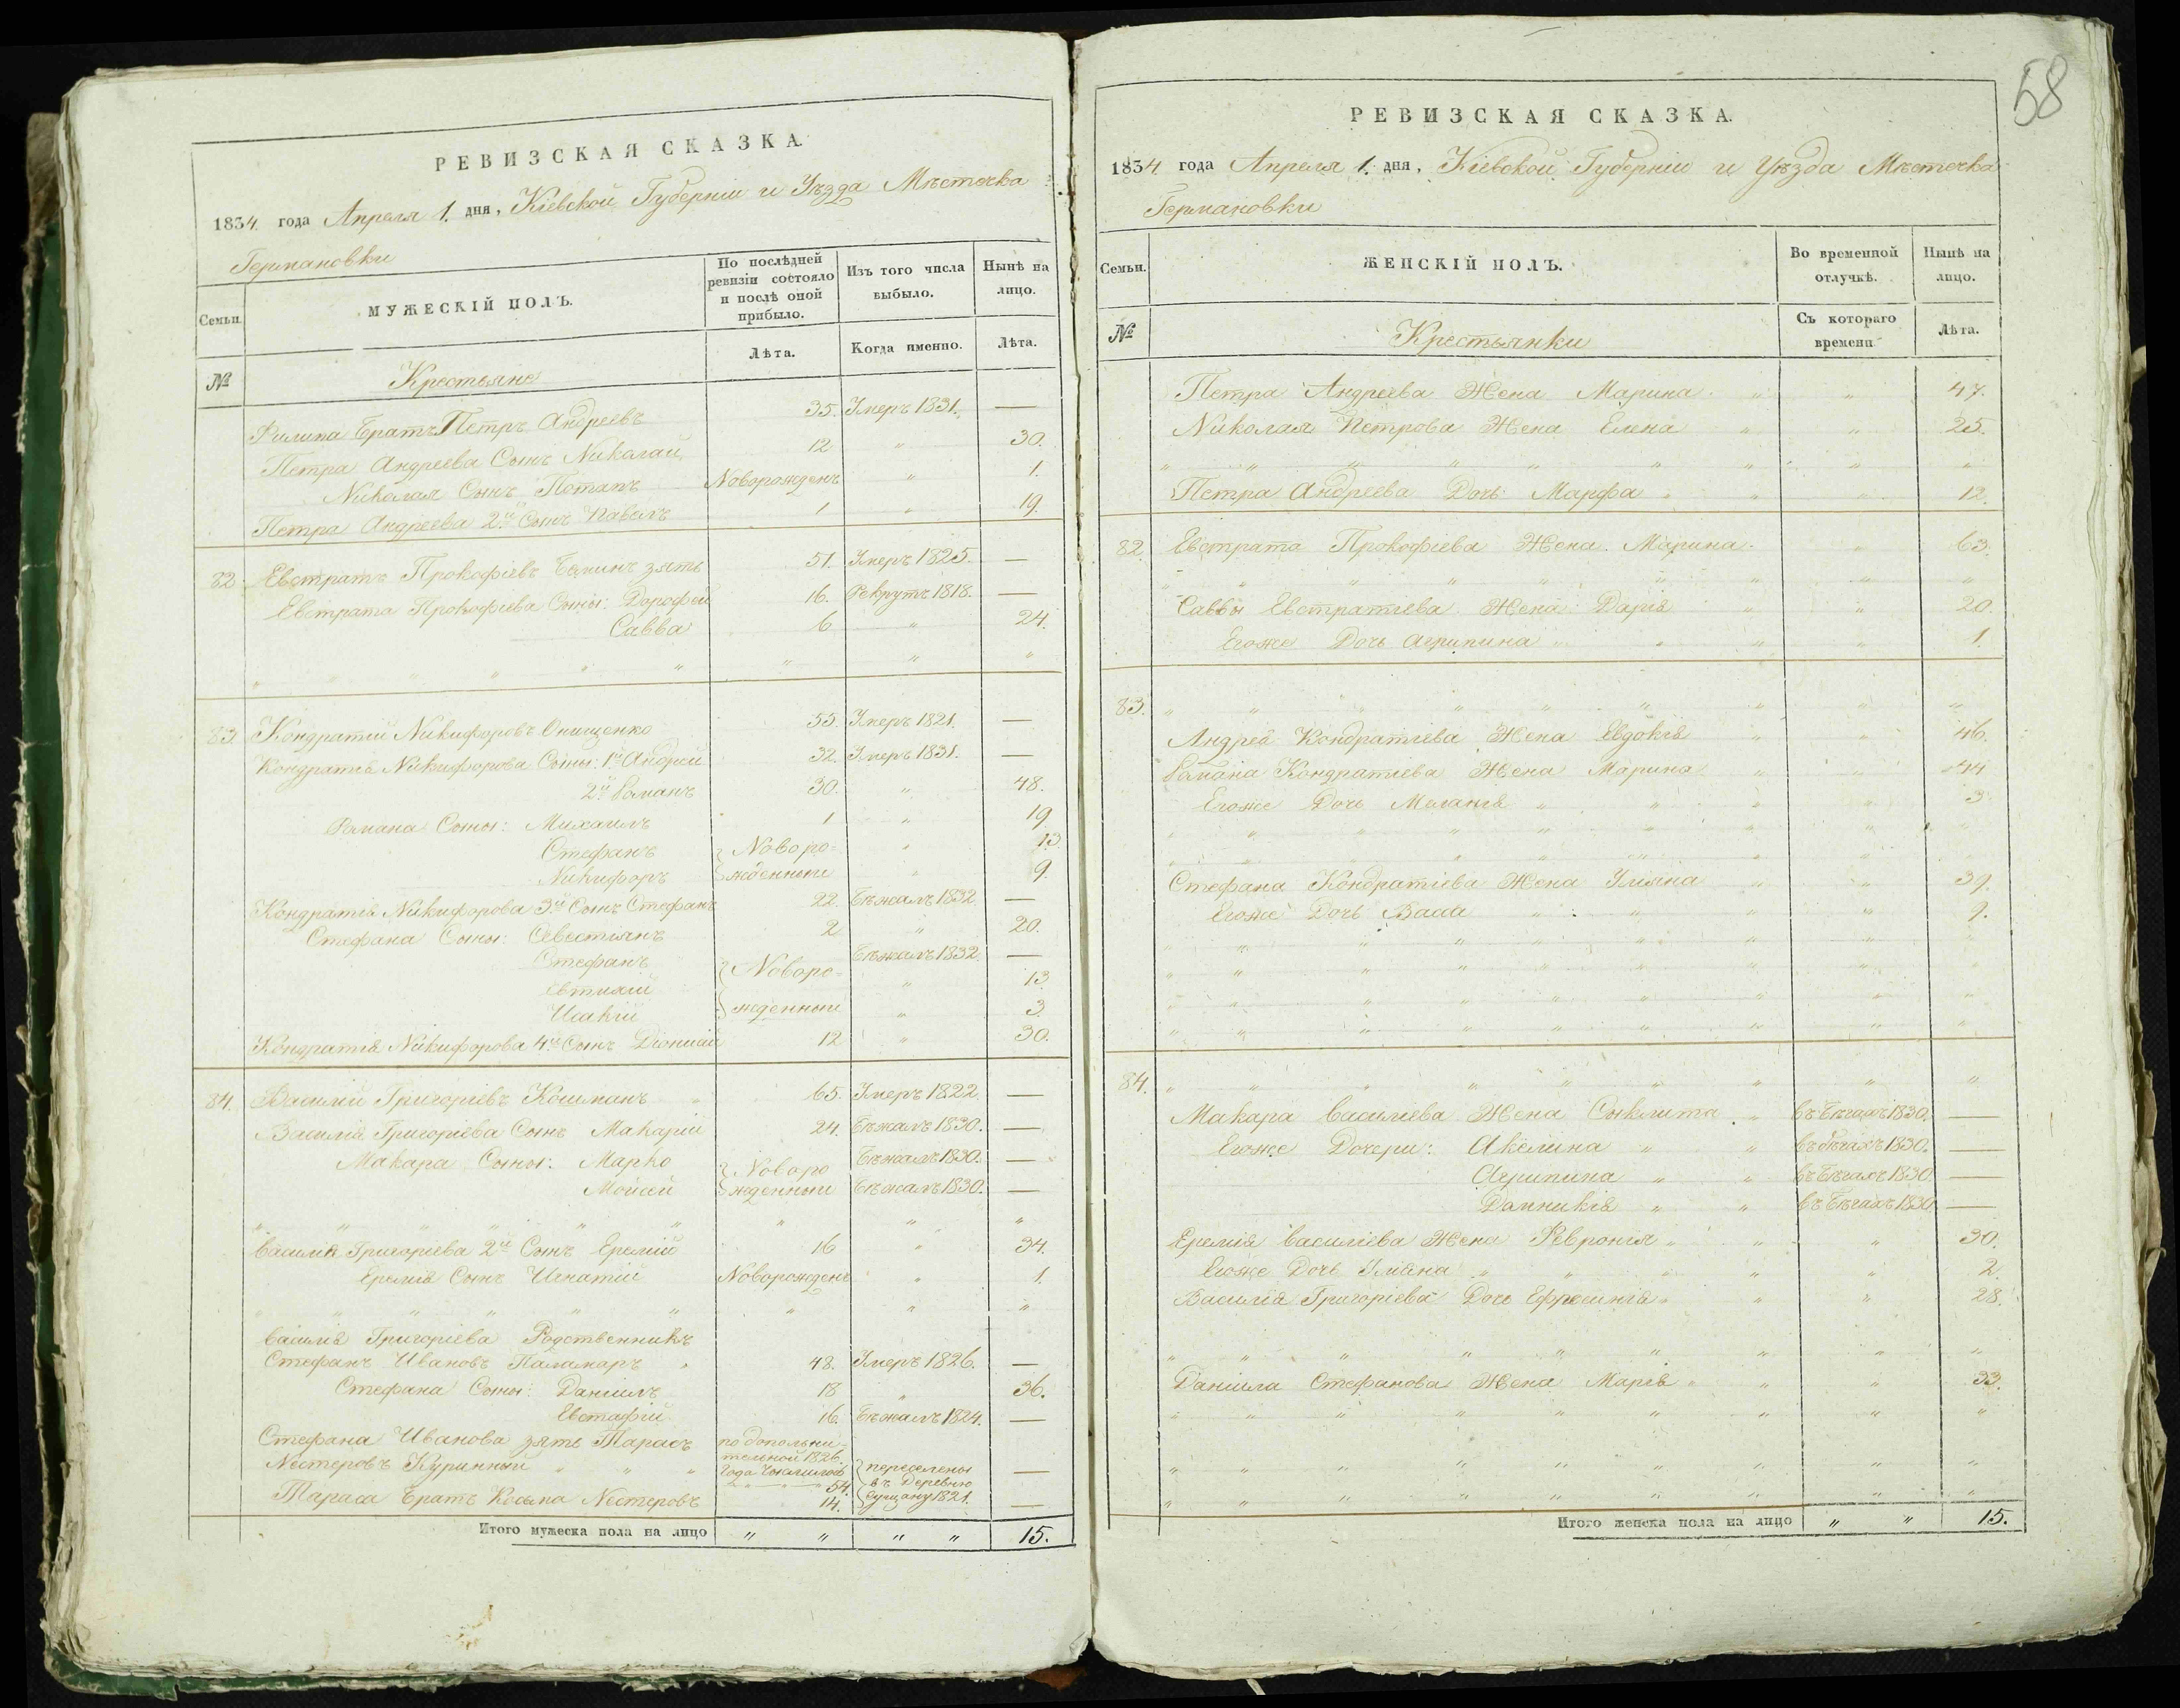 РЕВИЗСКАЯ СКАЗКА.
1834. года Апреля 1. дня, Кіевской Губерніи и Уѣзда Мѣстечка
Германовки
Семьи. МУЖЕСКІЙ ПОЛЪ. По послѣдней ревизіи состояло и послѣ оной прибыло. Изъ того числа выбыло. Нынѣ на лицо.
№ Крестьяне Лѣта. Когда именно. Лѣта.
Филипа Братъ Петръ Андреевъ 35. Умеръ 1831. —
Петра Андреева Сынъ Николай 12 " 30.
Николая Сынъ Потапъ Новорожденъ " 1.
Петра Андреева 2й Сынъ Павелъ 1 " 19.
82. Евстратъ Прокофіевъ зять 51. Умеръ 1825. —
Евстрата Прокофіева Сыны: Дорофей 16. Рекрутъ 1818. —
Савва 6 " 24.
" " " " " " " " "
83. Кондратій Никифоровъ Онищенко 55. Умеръ 1821. —
Кондратія Никифорова Сыны: 1й Андрей 32. Умеръ 1831. —
2й Романъ 30. " 48.
Романа Сыны: Михаилъ 1 " 19
Стефанъ Новоро= " 13
Никифоръ жденные " 9.
Кондратія Никифорова 3й Сынъ Стефанъ 22. Бѣжалъ 1832. —
Стефана Сыны: Севестіянъ 2 " 20.
Стефанъ Новоро= Бѣжалъ 1832. —
Евтихій " 13.
Исакій жденные " 3.
Кондратія Никифорова 4й Сынъ Діонисій 12 " 30.
84. Василій Григоріевъ Кошманъ " 65. Умеръ 1822. —
Василія Григоріева Сынъ Макарій 24. Бѣжалъ 1830. —
Макара Сыны: Марко Новоро Бѣжалъ 1830. —
Мойсей жденные Бѣжалъ 1830. —
" " " " " " " " "
Василія Григоріева 2й Сынъ Еремій 16 " 34.
Еремія Сынъ Игнатій Новорожденъ " 1.
" " " " " " " " "
Василія Григоріева Родственникъ
Стефанъ Ивановъ Паламаръ " 48. Умеръ 1826. —
Стефана Сыны: Даніилъ 18 " 36.
Евстафій 16. Бѣжалъ 1824. —
Стефана Иванова зять Тарасъ по дополни-
Нестеровъ Куринный " " " тельной 1826. года 54. переселены въ деревню —
Тараса Братъ Косьма Нестеровъ 14. 1821. —
Итого мужеска пола на лицо " " " " 15.
58
РЕВИЗСКАЯ СКАЗКА.
1834 года Апреля 1. дня, Кіевской Губерніи и Уѣзда Мѣстечка
Германовки
Семьи. ЖЕНСКІЙ ПОЛЪ. Во временной отлучкѣ. Нынѣ на лицо.
№ Крестьянки Съ котораго времени. Лѣта.
Петра Андреева Жена Марина " " 47.
Николая Петрова Жена Елена " " 25.
" " " " " " " " "
Петра Андреева Дочь Марфа " " " 12.
82. Евстрата Прокофіева Жена Марина " 63.
" " " " " " " " "
Саввы Евстратіева Жена Дарія " " 20.
Егоже Дочь Агрипина " " " " 1.
83. " " " " " " " " "
Андрея Кондратіева Жена Евдокія " " 46.
Романа Кондратіева Жена Марина " " 44
Егоже Дочь Меланія " " " " 3.
" " " " " " " " "
" " " " " " " " "
Стефана Кондратіева Жена Уліяна " " 39.
Егоже Дочь Васса " " " " 9.
" " " " " " " " "
" " " " " " " " "
" " " " " " " " "
" " " " " " " " "
84. " " " " " " " " "
Макара Василіева Жена Сынклита " въ Бѣгахъ 1830. —
Егоже Дочери: Акелина " " въ бѣгахъ 1830. —
Агрипина " " въ Бѣгахъ 1830. —
Домникія " " въ Бѣгахъ 1830 —
Еремія Василіева Жена Февронія " " " 30.
Егоже Дочь Уліяна " " " " 2.
Василія Григоріева Дочь Ефросинія " " " 28.
" " " " " " " " "
Даніила Стефанова Жена Марія " " " 33.
" " " " " " " " "
" " " " " " " " "
" " " " " " " " "
Итого женска пола на лицо " " 15.